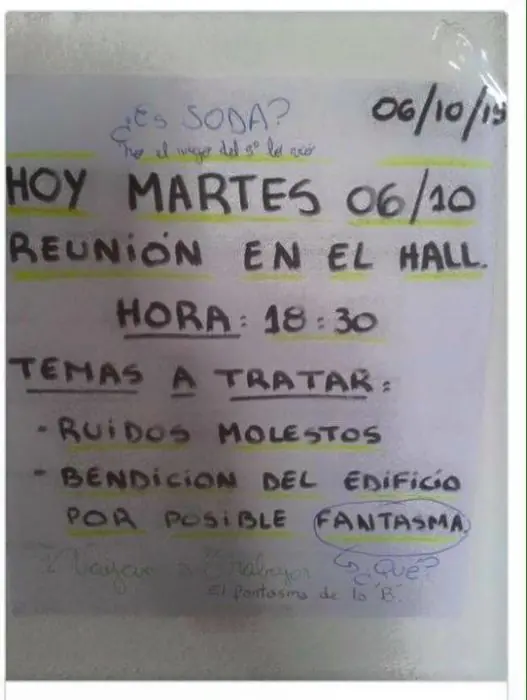 06/10/15
¿Es SODA?
no el viejo del 5° lo
HOY MARTES 06/10
REUNIÓN EN EL HALL.
HORA: 18:30
TEMAS A TRATAR:
- RUIDOS MOLESTOS
- BENDICION DEL EDIFICIO
POR POSIBLE FANTASMA
Vayan a trabajar
¿Qué?
El fantasma de la "B".